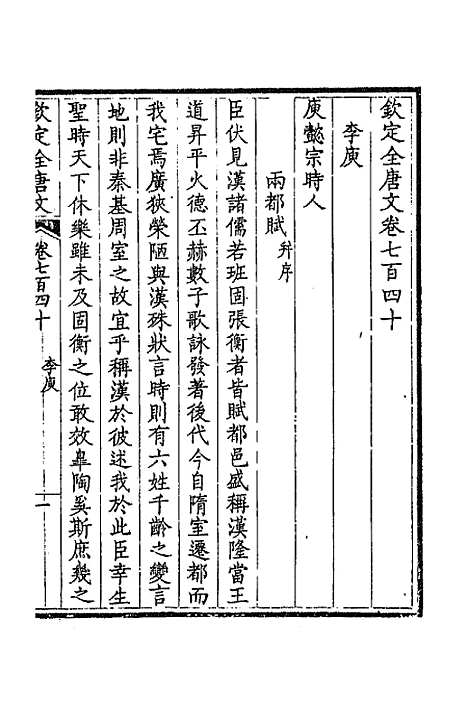 欽定全唐文卷七百四十
李庾
庾懿宗時人
兩都賦并序
臣伏見漢諸儒若班固張衡者皆賦都邑盛稱漢隆當王
道昇平火德丕赫數子歌詠發著後代今自隋室遷都而
我宅焉廣狹榮陋與漢殊狀言時則有六姓千齡之變言
地則非秦基周室之故宜乎稱漢於彼述我於此臣幸生
聖時天下休樂雖未及固衡之位敢效臯陶奚斯庶幾之
欽定全唐文 卷七百四十 李庾 一